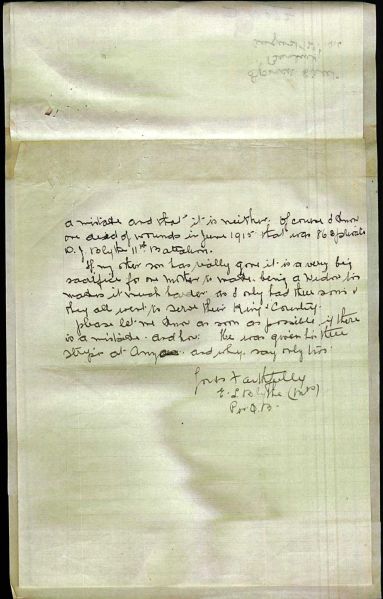 a mistake and that it is neither. Of course I know
one died of wounds in June 1915 that was 863 private
D. J. Blythe 11th Battalion.
If my other son has really gone it is a very big
sacrifice for one mother to make. being a widow too
makes it much harder as I only had three sons &
they all went to serve their King & Country.
please let me know as soon as possible if there
is a mistake. and how He was given his three
stripes at and why say only two.
Yours Faithfully
E. L. Blythe (Mrs)